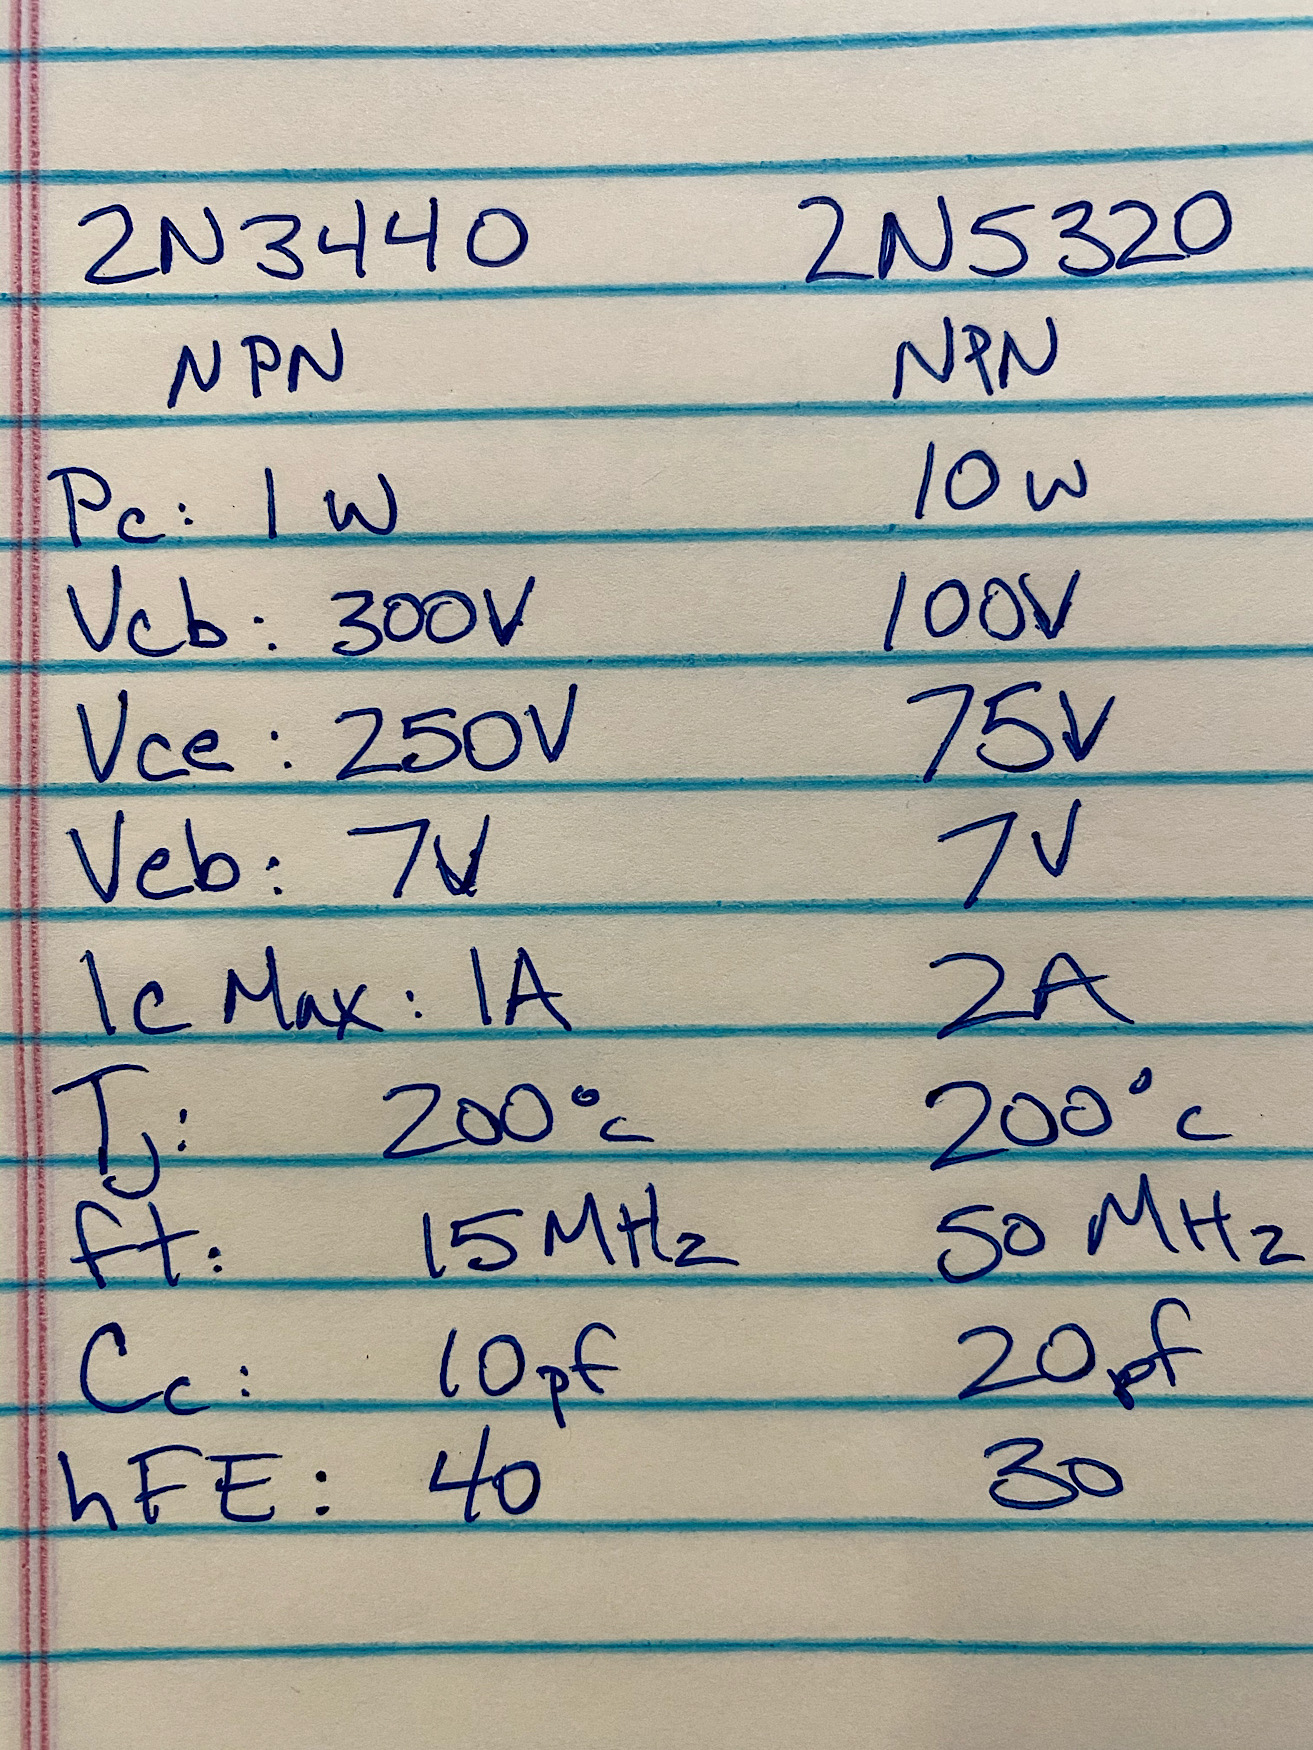 2N3440 2N5320
NPN NPN
Pc: 1 W 10 W
Vcb: 300V 100V
Vce: 250V 75V
Veb: 7V 7V
Ic Max: 1A 2A
Tj: 200°c 200°c
ft: 15 MHz 50 MHz
Cc: 10pf 20pf
hFE: 40 30